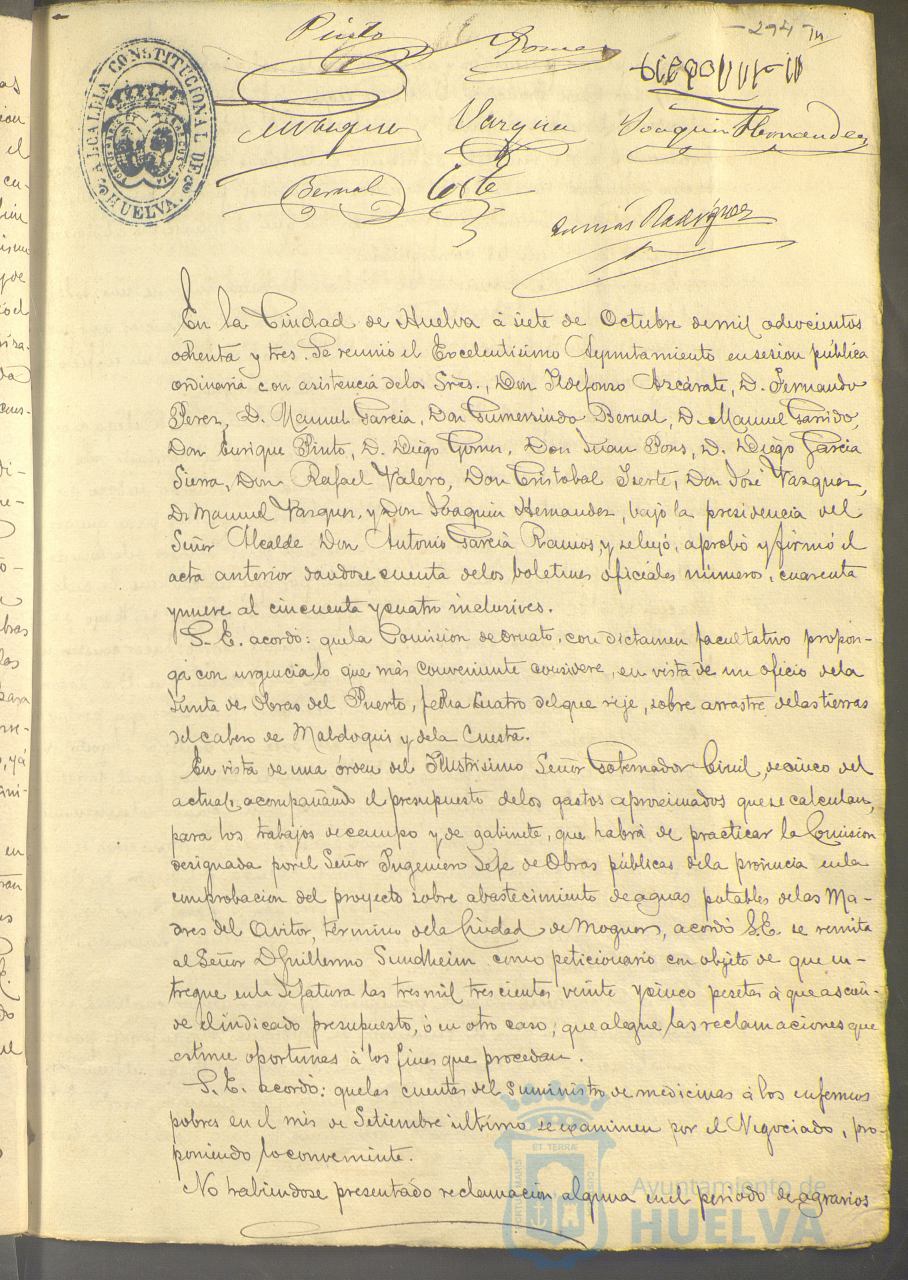 294
Pinto Gomez
Vazquez Vargas Joaquin Hernandez
Bernal
Tomás Rodriguez
ALCALDIA CONSTITUCIONAL DE HUELVA
En la Ciudad de Huelva á siete de Octubre de mil ochocientos
ochenta y tres. Se reunió el Excelentisimo Ayuntamiento en sesion pública
ordinaria con asistencia de los Sres., Don Ildefonso Azcárate, D. Fernando
Perez, D. Manuel Garcia, Don Gumersindo Bernal, D. Manuel Garrido,
Don Enrique Pinto, D. Diego Gomez, Don Juan Pons, D. Diego Garcia
Sierra, Don Rafael Valero, Don Cristobal Iserte, Don José Vazquez,
D. Manuel Vazquez, y Don Joaquin Hernandez, bajo la presidencia del
Señor Alcalde Don Antonio Garcia Ramos, y se leyó, aprobó y firmó el
acta anterior dandose cuenta de los boletines oficiales números, cuarenta
y nueve al cincuenta y cuatro inclusives.
S. E. acordó: que la Comision de ornato, con dictamen facultativo propon-
ga con urgencia lo que más conveniente considere, en vista de un oficio de la
Junta de Obras del Puerto, fecha cuatro del que rije, sobre arrastre de las tierras
del cabezo de Maldoquis y de la Cuesta.
En vista de una órden del Ilustrisimo Señor Gobernador Civil, de cinco del
actual, acompañando el presupuesto de los gastos aproximados que se calculan,
para los trabajos de campo y de gabinete, que habrá de practicar la Comision
designada por el Señor Ingeniero Jefe de Obras públicas de la provincia en la
comprobacion del proyecto sobre abastecimiento de aguas potables de las Ma-
dres del Avitor, término de la Ciudad de Moguer, acordó S.E. se remita
al Señor D. Guillermo Sundheim como peticionario con objeto de que en-
tregue en la Jefatura las tres mil trescientas veinte y cinco pesetas á que ascien-
de el indicado presupuesto, ó en otro caso, que alegue las reclamaciones que
estime oportunas á los fines que procedan.
S. E. acordó: que las cuentas del suministro de medicinas á los enfermos
pobres en el mes de Setiembre último se examinen por el Negociado, pro-
poniendo lo conveniente.
No habiendose presentado reclamacion alguna en el periodo de agravios
Ayuntamiento de
HUELVA